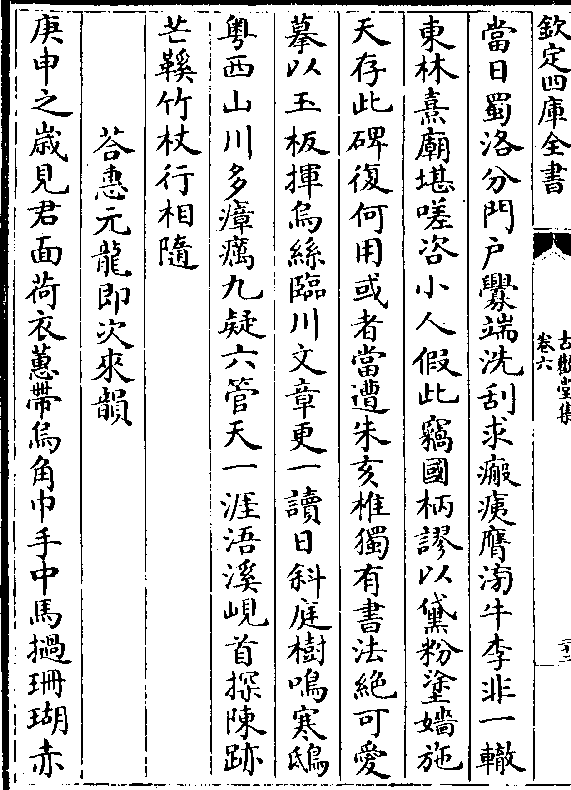 欽定四庫全書
古懽堂集
卷六
當日蜀洛分門户釁端洗刮求瘢痍膺滂牛李非一轍
東林熹廟堪嗟咨小人假此竊國柄謬以黛粉塗嬙施
天存此碑復何用或者當遭朱亥椎獨有書法絶可愛
摹以玉板揮烏絲臨川文章更一讀日斜庭樹鳴寒鴟
粤西山川多瘴癘九疑六管天一涯浯溪峴首探陳跡
芒鞵竹杖行相隨
荅惠元龍即次來韻
庚申之歲見君面荷衣蕙帶烏角巾手中馬撾珊瑚赤